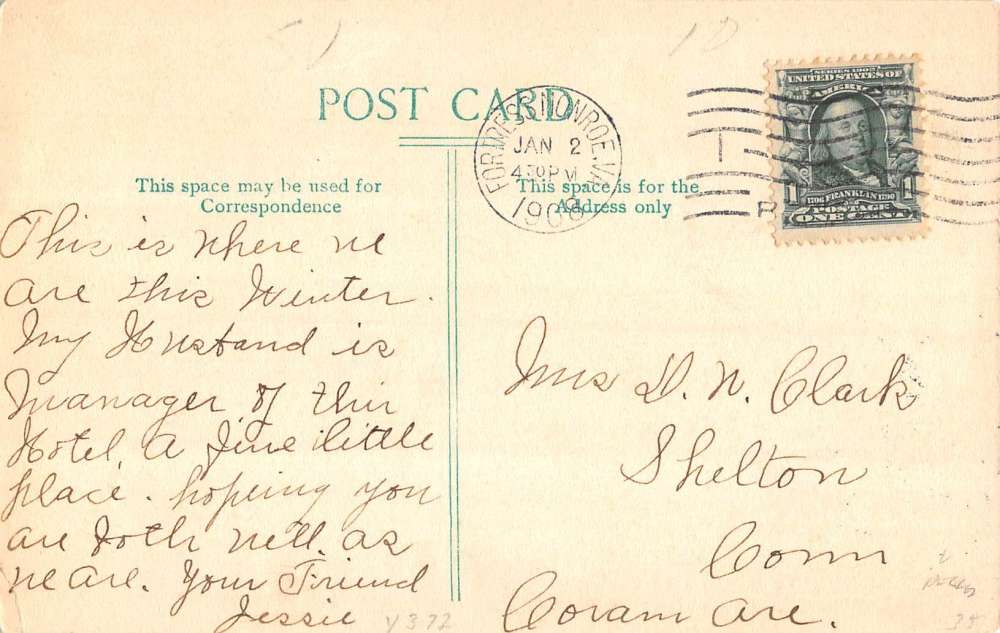 POST CARD
FORTRESS MONROE, VA.
JAN 2
4 30 PM
1908
SERIES 1902
UNITED STATES OF
AMERICA
1796 FRANKLIN 1790
POSTAGE
1 ONE CENT 1
This space may be used for
Correspondence
This space is for the
Address only
This is where we
are this Winter.
My Husband is
Manager of this
Hotel, a fine little
place. hoping you
are both well. as
we are. Your Friend
Jessie
Mrs D. N. Clark
Shelton
Conn
Coram Ave.
V372
35